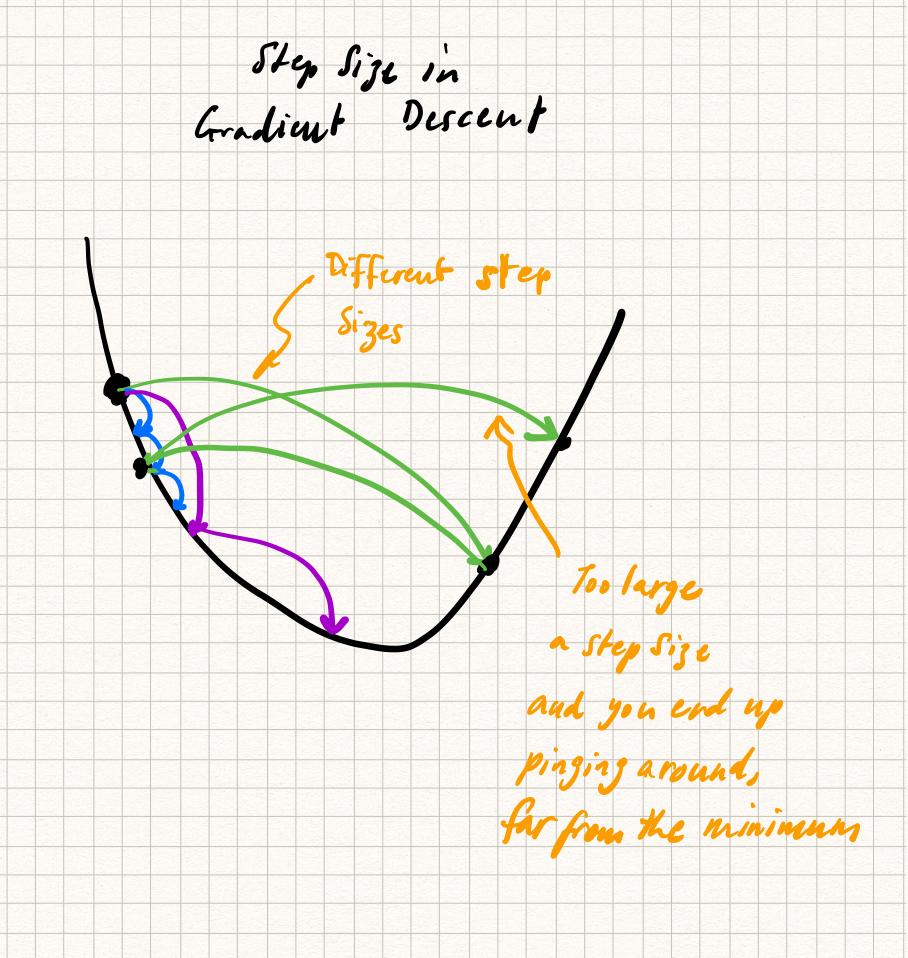 Step Size in
Gradient Descent
Different step
sizes
Too large
a step size
and you end up
pinging around,
far from the minimum